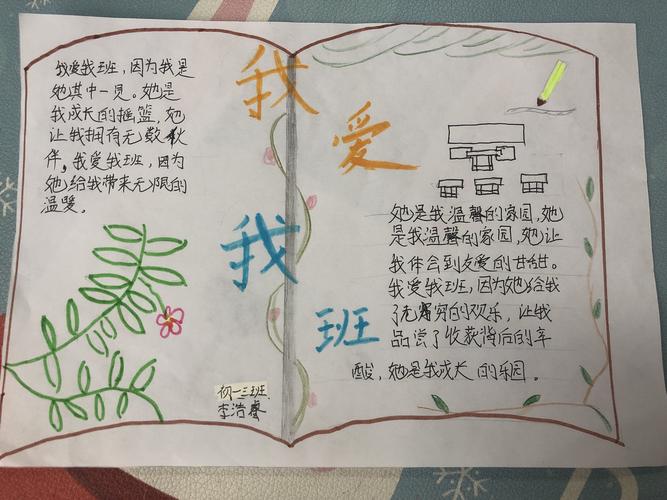 我爱我班
我爱我班，因为我是
她其中一员。她是
我成长的摇篮，她
让我拥有无数伙
伴。我爱我班，因为
她给我带来无限的
温暖。
初一三班.
李浩睿
她是我温馨的家园，她
是我温馨的家园，她让
我体会到友爱的甘甜。
我爱我班，因为她给我
了无穷的欢乐，让我
品尝了收获背后的辛
酸，她是我成长的乐园。